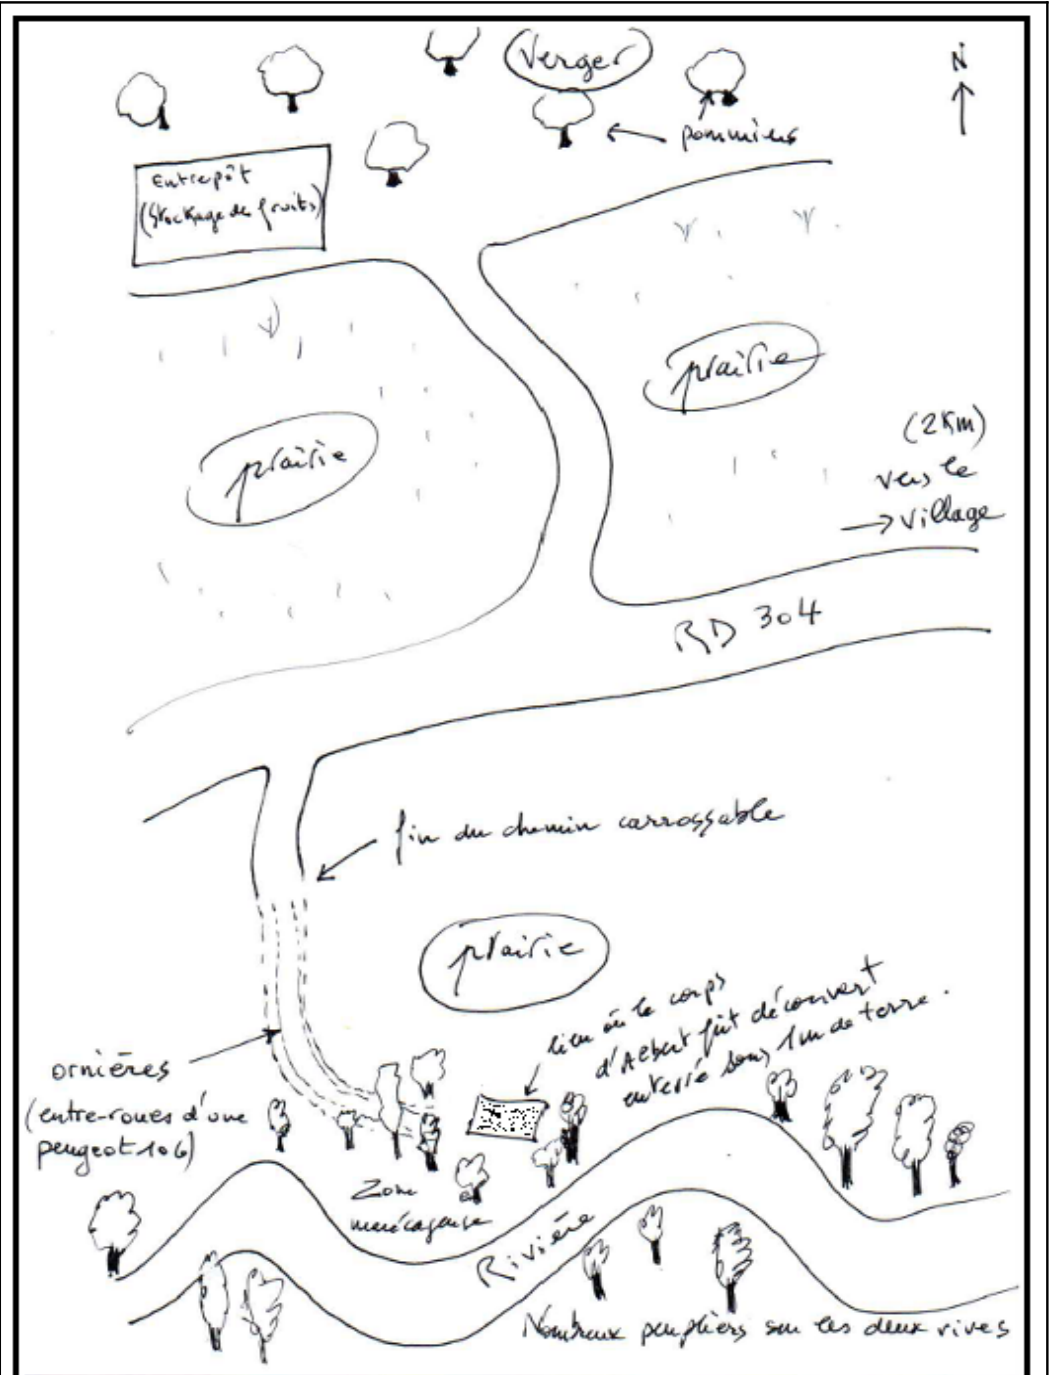 Verger
N
pommiers
Entrepôt
(Stockage des fruits)
prairie
prairie
(2 Km)
vers le
village
RD 304
fin du chemin carrossable
prairie
lieu où le corps
d'Albert fût découvert
enterré sous 1 m de terre.
ornières
(entre-roues d'une
peugeot 106)
Zone
marécageuse
Rivière
Nombreux peupliers sur les deux rives